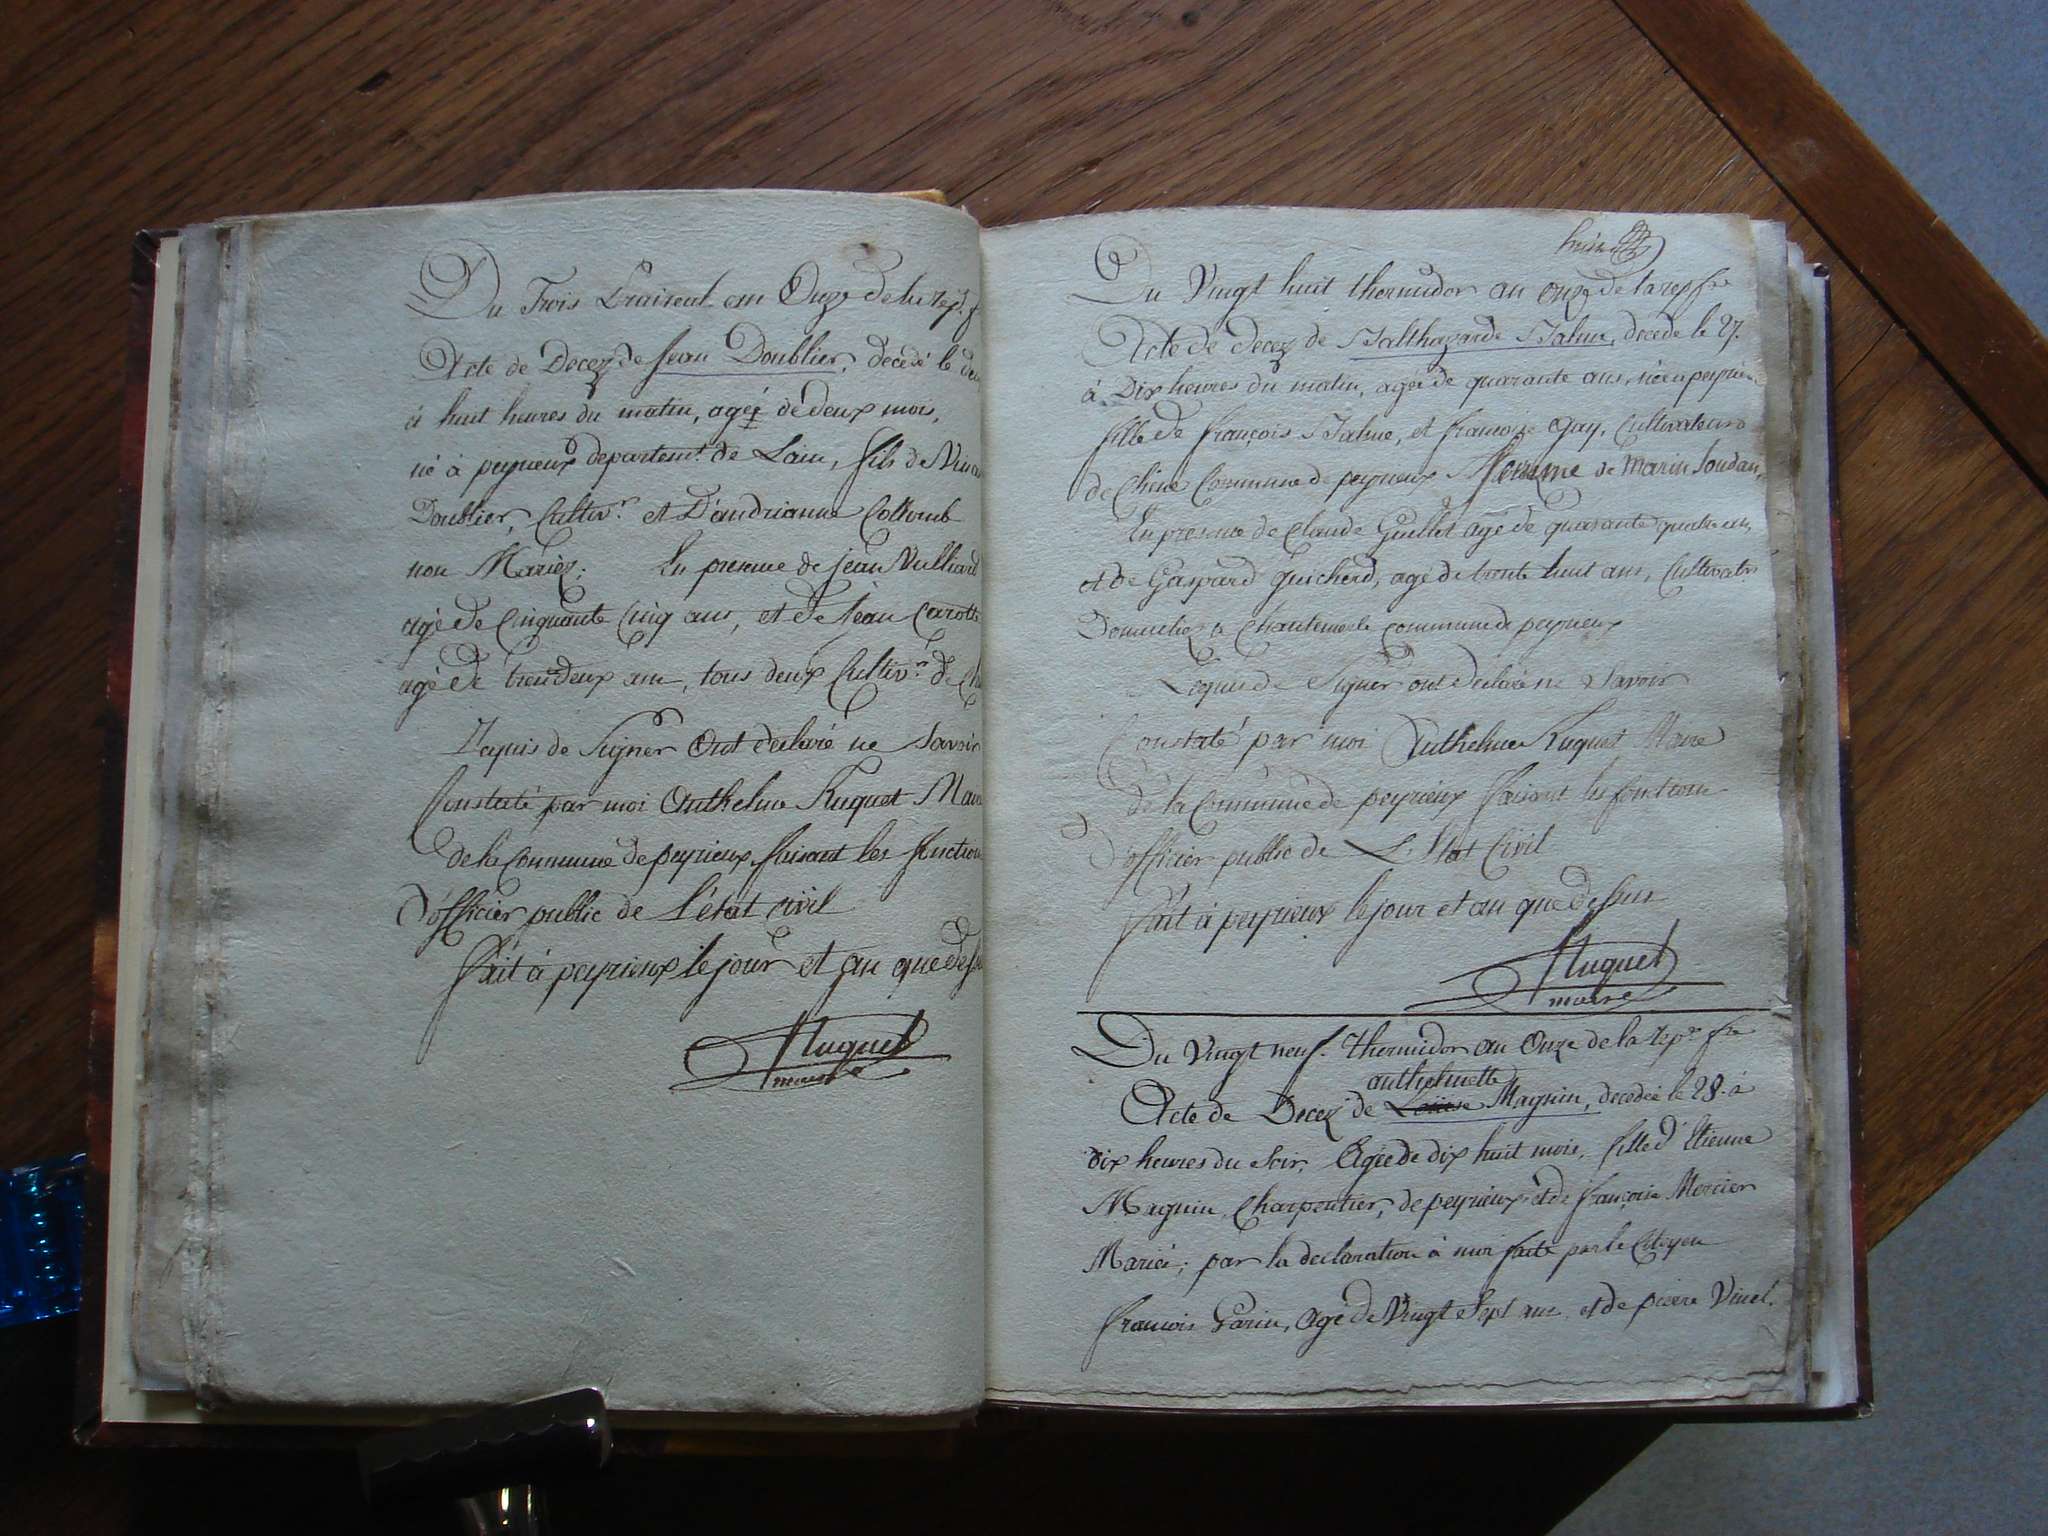 Du Trois Prairial an Onze de la rep. f
Acte de Decez de Jean Doublier, decedé le deu
à huit heures du matin, agé de deux mois,
né à peyrieux departemt. de Lain, fils de Vinc
Doublier, Cultivr. et D'andrianne Collomb
non Mariez; En presence de jean Vulliard
agé de Cinquante Cinq ans, et de Jean Carotte
agé de trentdeux ans, tous deux Cultivr. de Ch
Requis de Signer Ont declaré ne Savoir
Constaté par moi Anthelme Huguet Maire
de la Commune de peyrieux faisant les fonction
D'officier public de L'état civil
fait à peyrieux le jour et an que dess
Huguet
maire
huit
Du Vingt huit thermidor an onze de la rep fre
Acte de decez de Balthazarde Balme, decede le 27.
à Dix heures du matin, agée de quarante ans, née a peyrieu
fille de françois Balme, et francoise Gay, Cultivateurs
de Commune de peyrieux femme de Marin Soudan,
En presence de Claude Guillot agé de quarante quatre ans,
et de Gaspard Guicherd, agé de trente huit ans, Cultivatrs
Domiciliez a Chantemerle commune de peyrieux
Requis de Signer ont declaré ne Savoir
Constaté par moi Anthelme Huguet Maire
de la Commune de peyrieux faisant les fonction
D'officier public de L'Etat Civil
fait à peyrieux le jour et an que dessus
Huguet
maire
Du Vingt neuf thermidor an Onze de la repe. fre
anthelmette
Acte de Decez de Louise Magnin, decedée le 28. à
dix heures du Soir, Agée de dix huit mois, fille d'Etienne
Magnin, Charpentier, de peyrieux et de françoise Mercier
Mariés; par la declaration à moi faite par le Citoyen
francois Garin, agé de Vingt Sept ans et de pierre Vinet.